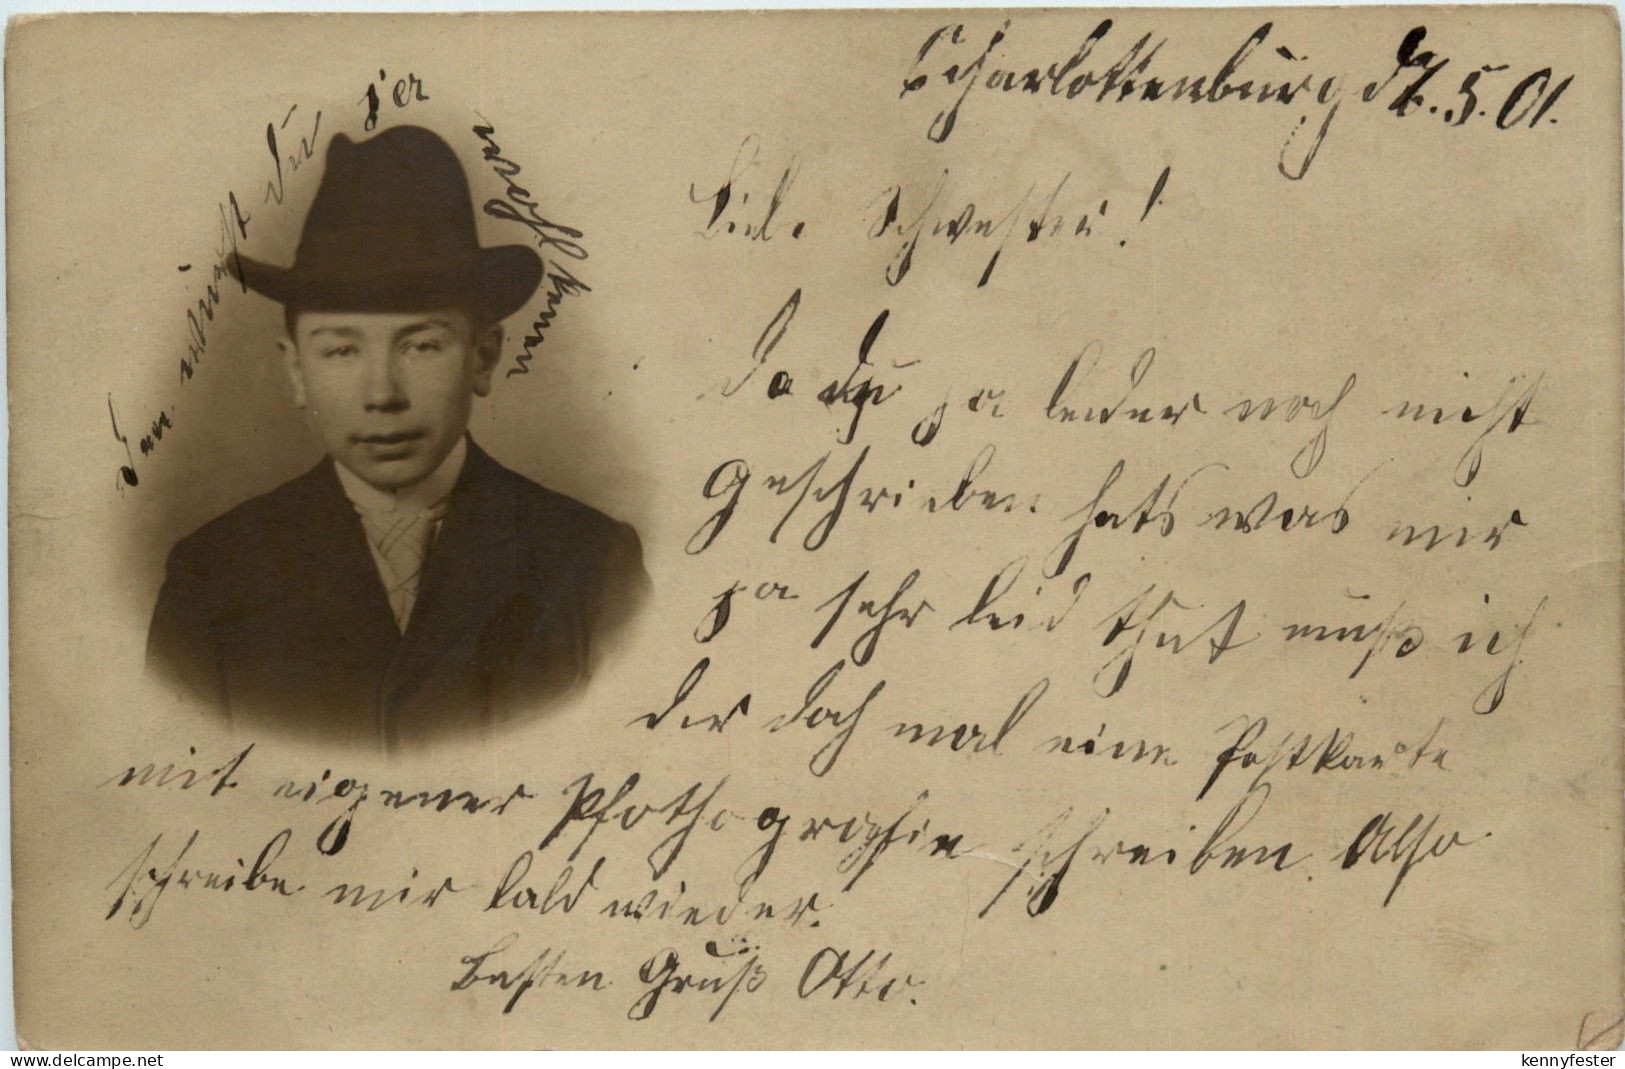 Charlottenburg d. 7.5.01.
Liebe Schwester!
Da du ja leider noch nicht
geschrieben hats was mir
ja sehr leid thut muß ich
der doch mal eine Postkarte
mit eigener Pfothografie schreiben. Also
schreibe mir bald wieder.
Besten Gruß Otto.
Den wirst Du ja wohl kennen
www.delcampe.net
kennyfester